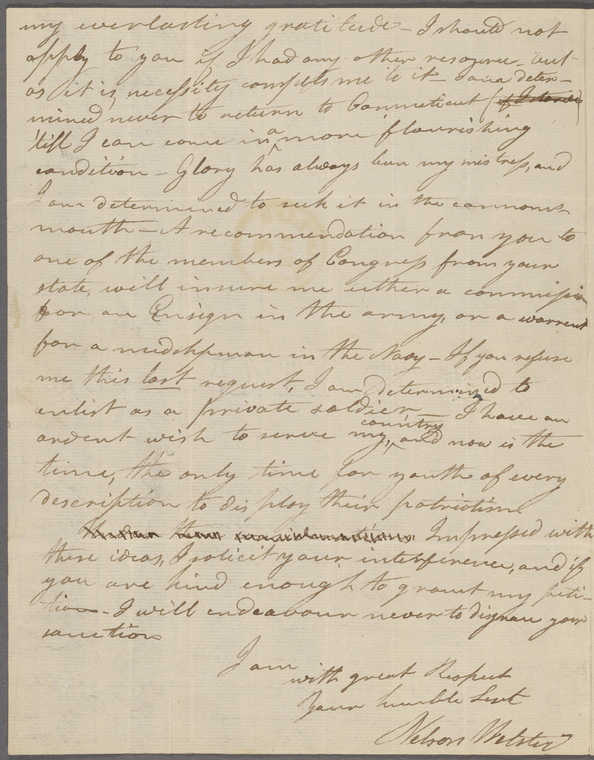 my everlasting gratitude – I should not
apply to you if I had any other resource – but
as it is, necessity compels me to it – I am deter-
mined never to return to Connecticut (
'till I can come in a more flourishing
condition – Glory has always been my mistress, and
I am determined to seek it in the cannons
mouth – A recommendation from you to
one of the members of Congress from your
state, will insure me either a commission
for an Ensign in the army, or a warrent
for a midshpman in the Navy – If you refuse
me this last request, I am determined to
enlist as a private soldier – I have an
ardent wish to serve my country, and now is the
time, the only time for youth of every
description to display their patriotism
Impressed with
these ideas, I solicit your interference, and if
you are kind enough to grant my peti-
tion – I will endeavour never to disgrace your
sanction
I am
with great Respect
Your humble Servt
Nelson Webster